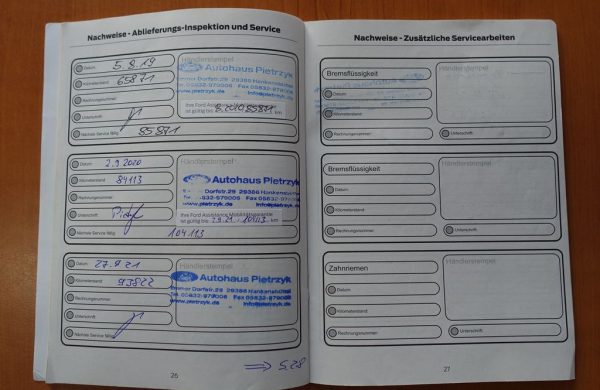 Nachweise - Ablieferungs-Inspektion und Service
Datum 5.9.19
Kilometerstand 65871
Rechnungsnummer
Unterschrift
Nächstes Service fällig 85871
Händlerstempel
Autohaus Pietrzyk
Dorfstr.29 29386 Hankensbüttel
Tel. 05832-979006 Fax 05832-97
www.pietrzyk.de info@pietrzyk.de
Ihre Ford Assistance
ist gültig bis km
Datum 2.9.2020
Kilometerstand 84113
Rechnungsnummer
Unterschrift
Nächstes Service fällig 104.113
Händlerstempel
Autohaus Pietrzyk
Dorfstr.29 29386 Hankensbüttel
www.pietrzyk.de info@pietrzyk.de
Ihre Ford Assistance Mobilitätsgarantie
ist gültig bis 2.9.21 / 104113 km
Datum 27.9.21
Kilometerstand 93822
Rechnungsnummer
Unterschrift
Nächstes Service fällig
Händlerstempel
Autohaus Pietrzyk
Dorfstr.29 29386 Hankensbüttel
Tel. 05832-979006 Fax 05832-979
www.pietrzyk.de info@pietrzyk.de
26
⇒ S.28
Nachweise - Zusätzliche Servicearbeiten
Bremsflüssigkeit
Datum
Kilometerstand
Rechnungsnummer
Händlerstempel
Unterschrift
Bremsflüssigkeit
Datum
Kilometerstand
Rechnungsnummer
Händlerstempel
Unterschrift
Zahnriemen
Datum
Kilometerstand
Rechnungsnummer
Händlerstempel
Unterschrift
27